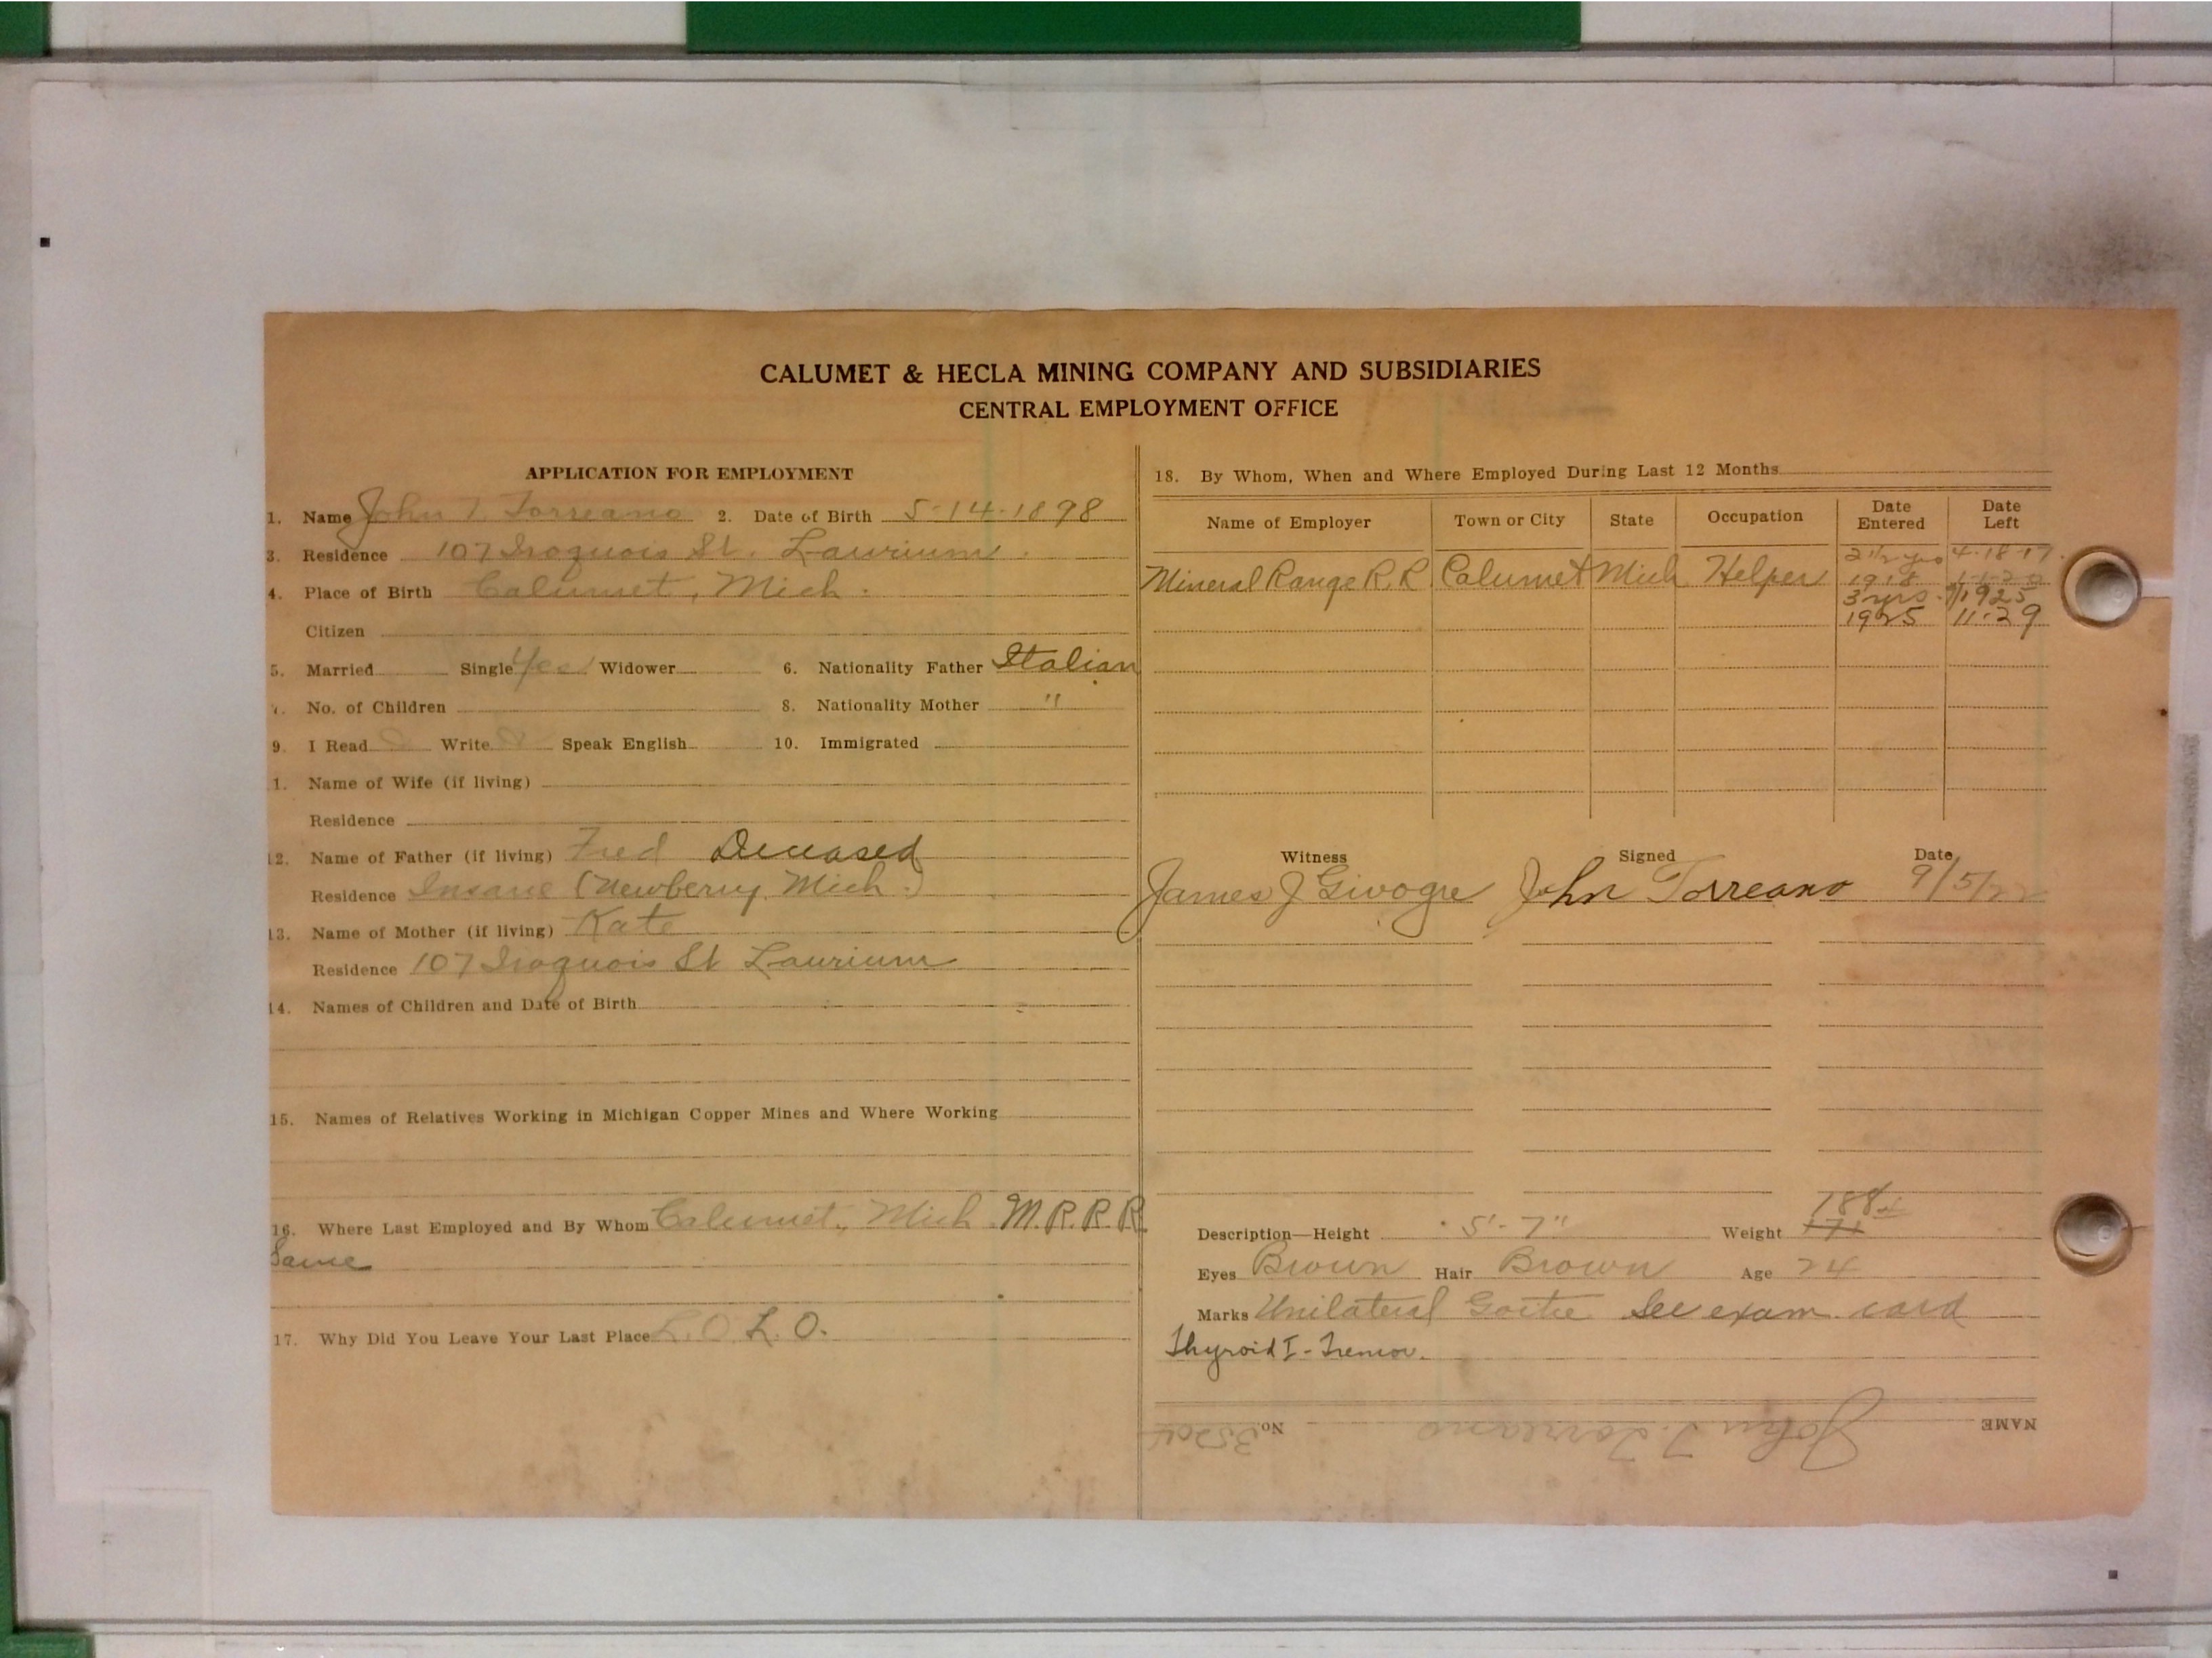 CALUMET & HECLA MINING COMPANY AND SUBSIDIARIES
CENTRAL EMPLOYMENT OFFICE
APPLICATION FOR EMPLOYMENT
1. Name John T. Torreano 2. Date of Birth 5-14-1898
3. Residence 107 Iroquois St. Laurium.
4. Place of Birth Calumet, Mich.
Citizen
5. Married Single Yes Widower 6. Nationality Father Italian
7. No. of Children 8. Nationality Mother "
9. I Read Write Speak English 10. Immigrated
1. Name of Wife (if living)
Residence
12. Name of Father (if living) Fred Deceased
Residence Insane (Newberry, Mich.)
13. Name of Mother (if living) Kate
Residence 107 Iroquois St Laurium
14. Names of Children and Date of Birth
15. Names of Relatives Working in Michigan Copper Mines and Where Working
16. Where Last Employed and By Whom Calumet, Mich. M.R.R.R.
Same
17. Why Did You Leave Your Last Place L.O. L.O.
18. By Whom, When and Where Employed During Last 12 Months
Name of Employer Town or City State Occupation Date Entered Date Left
2 1/2 yrs 4-18-17.
Mineral Range R.R. Calumet Mich Helper 1918
3 yrs. 1925
1925 11-29
Witness Signed Date
James J Givogre John Torreano 9/5/22
188
Description—Height 5'-7" Weight 171
Eyes Brown Hair Brown Age 24
Marks Unilateral Goitre See exam. card
Thyroid I - Tremor.
NAME John T. Torreano No. 35204